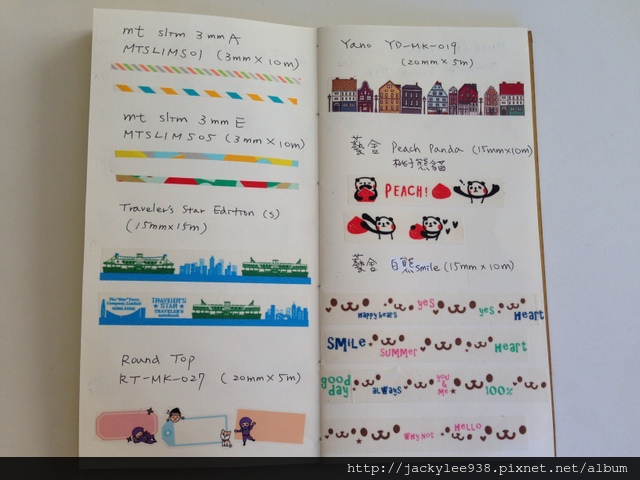 mt slim 3mm A
MTSLIMS01 (3mm X 10m)
mt slim 3mm E
MTSLIMS05 (3mm X 10m)
Traveler's Star Edition (S)
(15mm x 15m)
The "Star" Ferry
Company, Limited
HONG KONG
TRAVELER'S
STAR
TRAVELER'S
notebook
Round Top
RT-MK-027 (20mm X 5m)
Yano YD-MK-019
(20mm X 5m)
Peach Panda (15mm x 10m)
桃子熊貓
PEACH!
白熊smile (15mm x 10m)
Happy bears yes yes Heart
SMiLe SUMMER Heart
good day always you & Me 100%
WHY NOT HELLO
http://jackylee938.pixnet.net/album